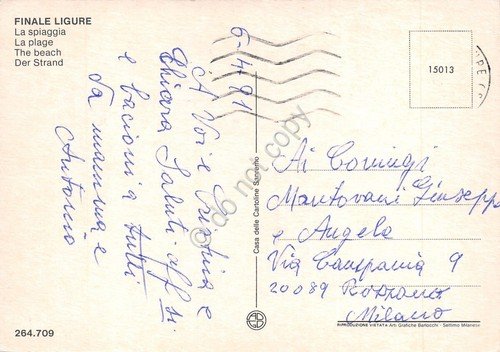 FINALE LIGURE
La spiaggia
La plage
The beach
Der Strand
6-4-91
A Voi e Cristina e
Chiara Saluti Aff.si
e bacioni a tutti
da mamma e
Antonio
15013
Casa delle Cartoline Sanremo
Ai Coniugi
Mantovani Giuseppe
e Angela
Via Campania 9
20089 Rozzano
Milano
do not copy
264.709
RIPRODUZIONE VIETATA - Arti Grafiche Barlocchi - Settimo Milanese